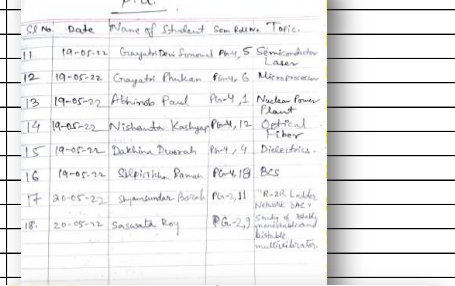 Sl No. Date Name of Student Sem Roll No. Topic.
11 19-05-22 Gayatri Devi PG-4, 5 Semiconductor
Laser
12 19-05-22 Gayatri Phukan PG-4, 6 Microprocessor
13 19-05-22 Abhinab Paul PG-4, 1 Nuclear Power
Plant
14 19-05-22 Nishanta Kashyap PG-4, 12 Optical
Fiber
15 19-05-22 Dakhina PG-4, 4 Dielectrics.
16 19-05-22 PG-4, 18 BCS
17 20-05-22 Shyamsundar Borah PG-2, 11 "R-2R Ladder
Network DAC"
18. 20-05-22 Saswata Roy PG-2, 9 Study of
monostable and
bistable
multivibrator.